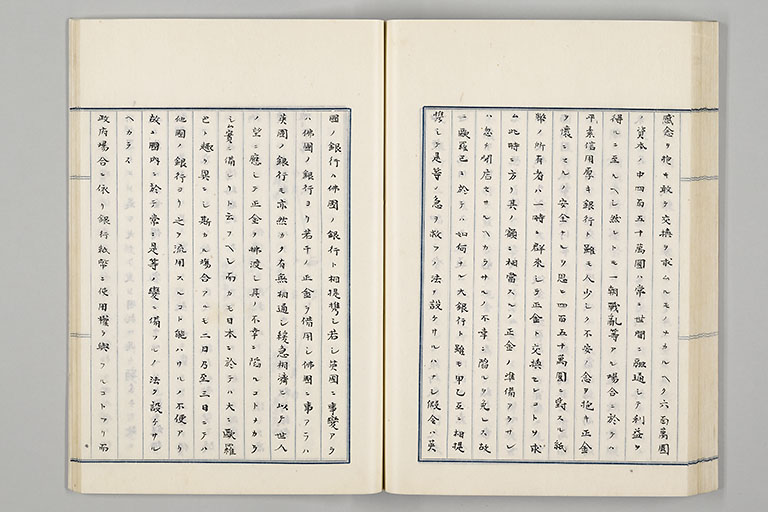 感念ヲ抱キ敢テ交換ヲ求ムルモノナカルヘク六百萬圓
ノ資本ノ中四百五十萬圓ハ常ニ世間ニ融通シテ利益ヲ
得ルニ至ルヘシ然レトモ一朝戰亂等アル場合ニ於テハ
平素信用厚キ銀行ト雖モ人少シク不安ノ念ヲ抱キ正金
ヲ懷ニスルノ安全ナルヲ思ヒ四百五十萬圓ニ對スル紙
幣ノ所有者ハ一時ニ群來シテ正金ト交換センコトヲ求
ム此時ニ方リ其ノ額ニ相當スルノ正金ノ準備アラサレ
ハ忽チ閉店セサルヘカラサルノ不幸ニ陷ルヲ免レス故
ニ歐羅巴ニ於テハ如何ナル大銀行ト雖モ甲乙互ニ相提
携シテ是等ノ急ヲ救フノ法ヲ設ケサルハナシ假令ハ英
國ノ銀行ハ佛國ノ銀行ト相提携シ若シ英國ニ事變アラ
ハ佛國ノ銀行ヨリ若干ノ正金ヲ借用シ佛國ニ事アラハ
英國ノ銀行モ亦然カク有無相通シ緩急相濟ヒ以テ世人
ノ望ニ應シテ正金ヲ拂渡シ其ノ不幸ニ陷ルコトナカラ
シム實ニ備レリト云フヘシ而カモ日本ニ於テハ大ニ歐羅
巴ト趣ヲ異ニシ斯カル場合アルモ二日乃至三日ニテハ
他國ノ銀行ヨリ之ヲ流用スルコト能ハサルノ不便アリ
故ニ國内ニ於テ常ニ是等ノ變ニ備フルノ法ヲ設ケサル
ヘカラス
政府場合ニ依リ銀行紙幣ニ使用權ヲ與フルコトアリ而